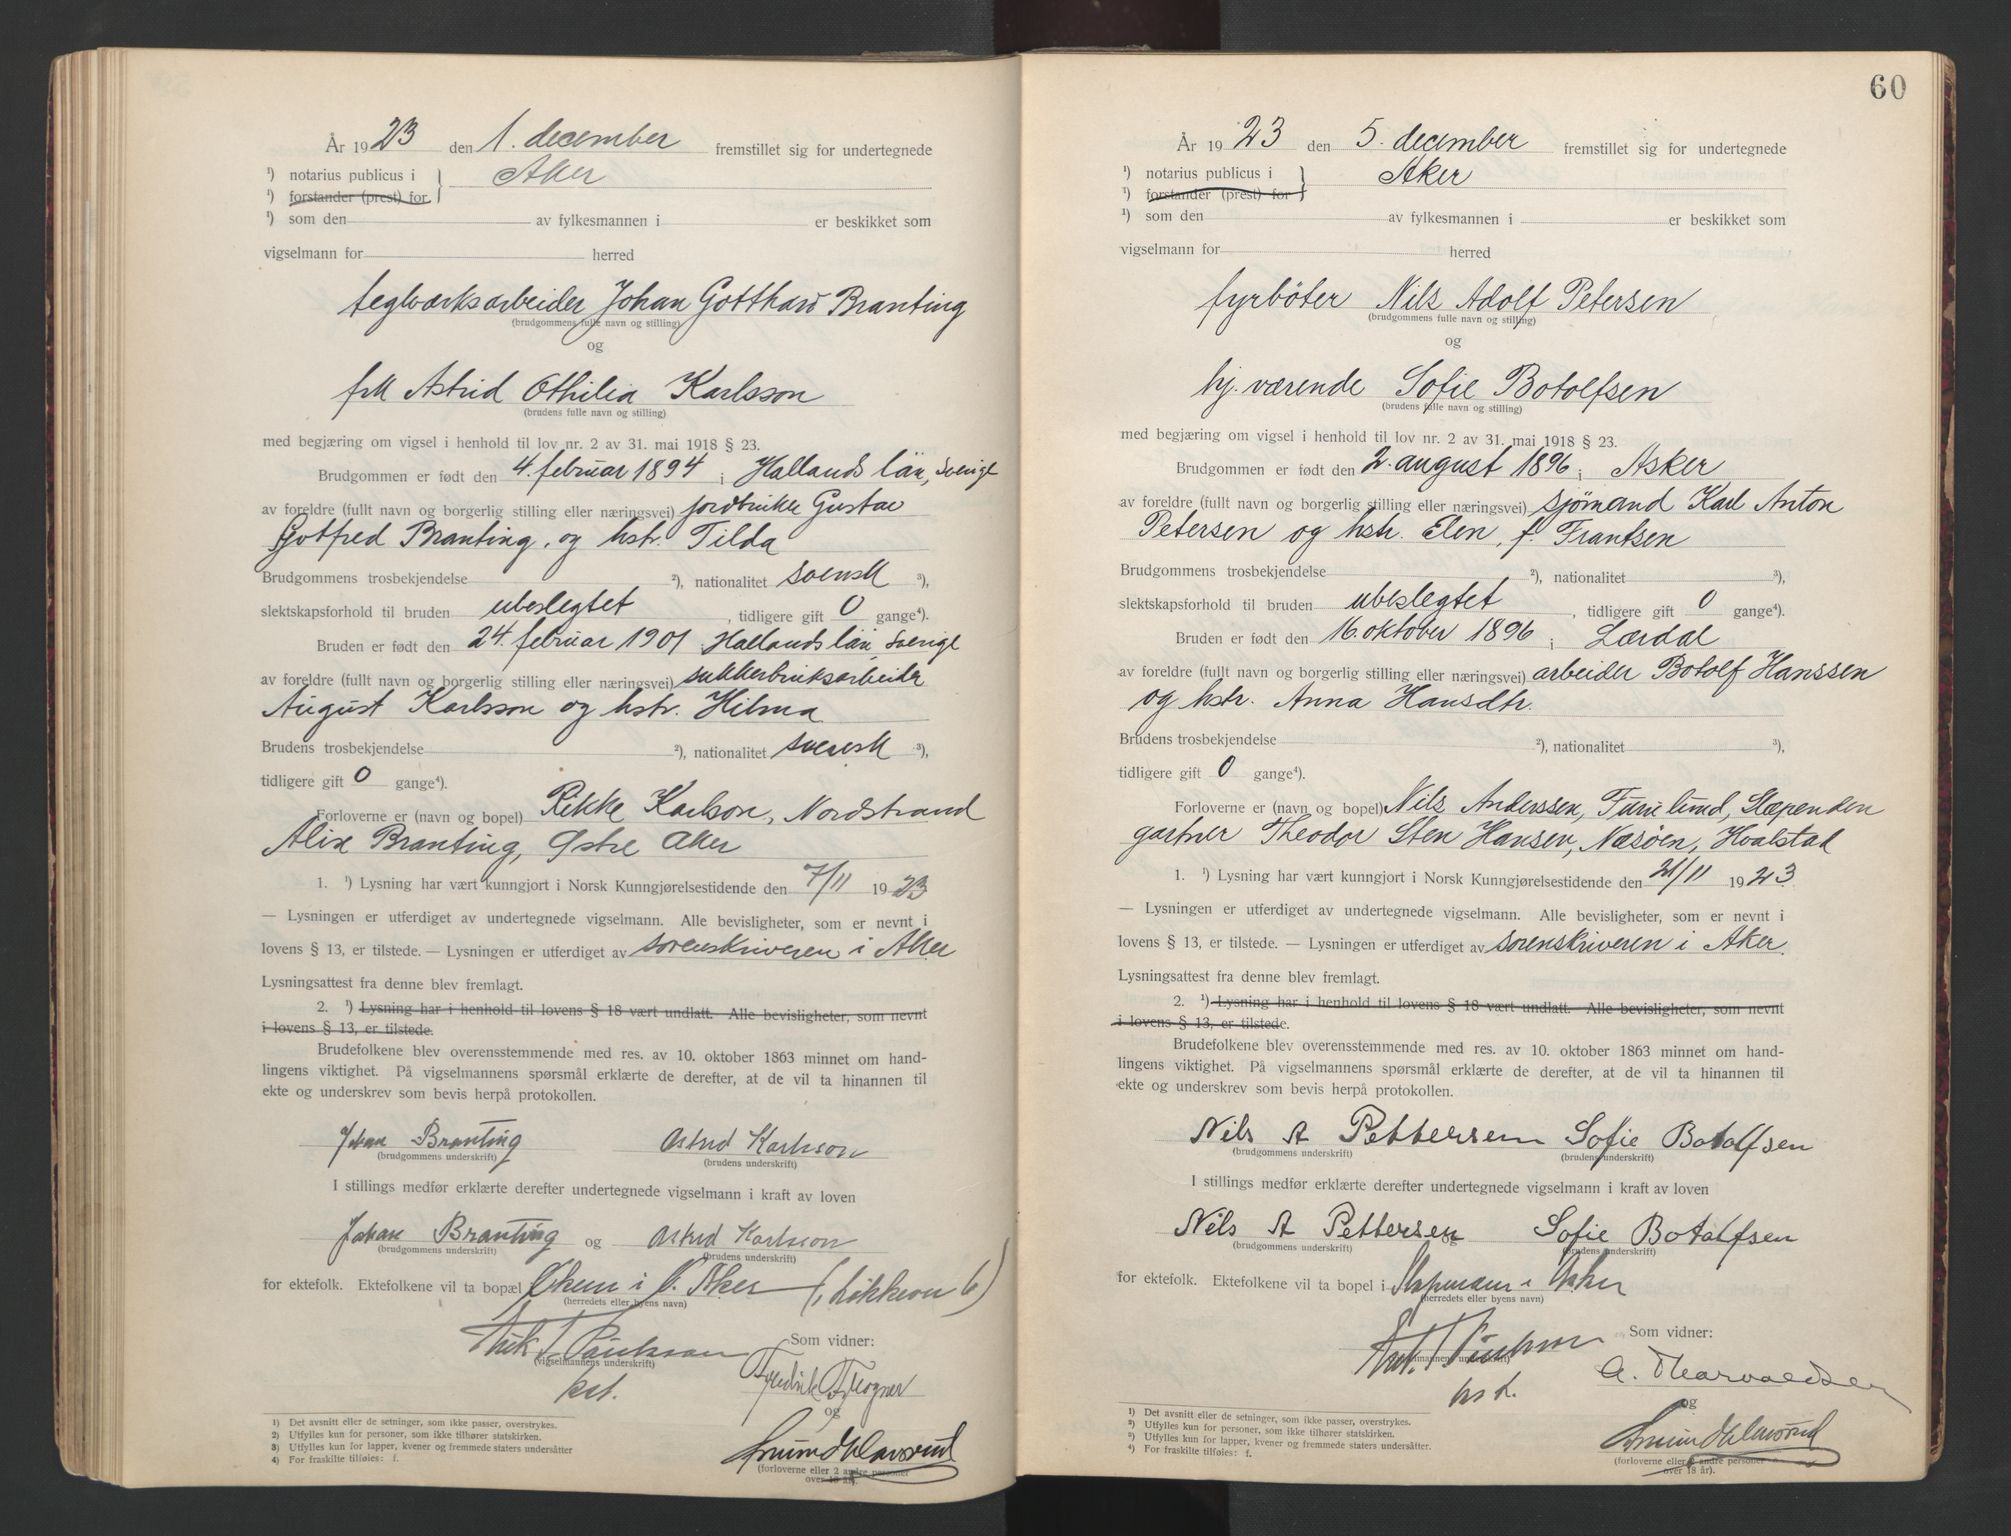 År 1923 den 1. december fremstillet sig for undertegnede
¹) notarius publicus i } Aker
¹) forstander (prest) for
¹) som den av fylkesmannen i er beskikket som
vigselmann for herred
teglværksarbeider Johan Gotthard Branting
(brudgommens fulle navn og stilling)
og
frk Astrid Othilia Karlsson
(brudens fulle navn og stilling)
med begjæring om vigsel i henhold til lov nr. 2 av 31. mai 1918 § 23.
Brudgommen er født den 4. februar 1894 i Hallands län, Sverige
av foreldre (fullt navn og borgerlig stilling eller næringsvei) jordbruker Gustav
Gotfred Branting, og hstr. Tilda
Brudgommens trosbekjendelse ²), nationalitet svensk ³),
slektskapsforhold til bruden ubeslegtet, tidligere gift 0 gange⁴).
Bruden er født den 24. februar 1901 Hallands län, Sverige
av foreldre (fullt navn og borgerlig stilling eller næringsvei) sukkerbruksarbeider
August Karlsson og hstr. Hilma
Brudens trosbekjendelse ²), nationalitet svensk ³),
tidligere gift 0 gange⁴).
Forloverne er (navn og bopel) Rikke Karlson, Nordstrand
Alix Branting, Østre Aker
1. ¹) Lysning har vært kunngjort i Norsk Kunngjørelsestidende den 7/11 1923
— Lysningen er utferdiget av undertegnede vigselmann. Alle bevisligheter, som er nevnt i
lovens § 13, er tilstede. — Lysningen er utferdiget av sorenskriveren i Aker
Lysningsattest fra denne blev fremlagt.
2. ¹) Lysning har i henhold til lovens § 18 vært undlatt. Alle bevisligheter, som nevnt
i lovens § 13, er tilstede.
Brudefolkene blev overensstemmende med res. av 10. oktober 1863 minnet om hand-
lingens viktighet. På vigselmannens spørsmål erklærte de derefter, at de vil ta hinannen til
ekte og underskrev som bevis herpå protokollen.
Johan Branting Astrid Karlsson
(brudgommens underskrift) (brudens underskrift)
I stillings medfør erklærte derefter undertegnede vigselmann i kraft av loven
Johan Branting og Astrid Karlsson
(brudgommens underskrift) (brudens underskrift)
for ektefolk. Ektefolkene vil ta bopæl i Ø. Aker
(herredets eller byens navn)
Som vidner:
(vigselmannens underskrift)
kst.
Fredrik
og
(forloverne eller 2 andre personer
over 18 år).
1) Det avsnitt eller de setninger, som ikke passer, overstrykes.
2) Utfylles kun for personer, som ikke tilhører statskirken.
3) Utfylles kun for lapper, kvener og fremmede staters undersåtter
4) For fraskilte tilføies: f.
60
År 1923 den 5. december fremstillet sig for undertegnede
¹) notarius publicus i } Aker
¹) forstander (prest) for
¹) som den av fylkesmannen i er beskikket som
vigselmann for herred
fyrböter Nils Adolf Petersen
(brudgommens fulle navn og stilling)
og
hj. værende Sofie Botolfsen
(brudens fulle navn og stilling)
med begjæring om vigsel i henhold til lov nr. 2 av 31. mai 1918 § 23.
Brudgommen er født den 2. august 1896 i Asker
av foreldre (fullt navn og borgerlig stilling eller næringsvei) sjømand Karl Anton
Petersen og hstr. Elen, f. Frantsen
Brudgommens trosbekjendelse ²), nationalitet ³),
slektskapsforhold til bruden ubeslegtet, tidligere gift 0 gange⁴).
Bruden er født den 16. oktober 1896 i Lærdal
av foreldre (fullt navn og borgerlig stilling eller næringsvei) arbeider Botolf Hanssen
og hstr. Anna Hansdtr.
Brudens trosbekjendelse ²), nationalitet ³),
tidligere gift 0 gange⁴).
Forloverne er (navn og bopel) Nils Anderssen, Furulund, Slæpenden
gartner Theodor Sten Hansen, Næsøen, Hvalstad
1. ¹) Lysning har vært kunngjort i Norsk Kunngjørelsestidende den 21/11 1923
— Lysningen er utferdiget av undertegnede vigselmann. Alle bevisligheter, som er nevnt i
lovens § 13, er tilstede. — Lysningen er utferdiget av sorenskriveren i Aker.
Lysningsattest fra denne blev fremlagt.
2. ¹) Lysning har i henhold til lovens § 18 vært undlatt. Alle bevisligheter, som nevnt
i lovens § 13, er tilstede.
Brudefolkene blev overensstemmende med res. av 10. oktober 1863 minnet om hand-
lingens viktighet. På vigselmannens spørsmål erklærte de derefter, at de vil ta hinannen til
ekte og underskrev som bevis herpå protokollen.
Nils A Pettersen Sofie Botolfsen
(brudgommens underskrift) (brudens underskrift)
I stillings medfør erklærte derefter undertegnede vigselmann i kraft av loven
Nils A Pettersen og Sofie Botolfsen
(brudgommens underskrift) (brudens underskrift)
for ektefolk. Ektefolkene vil ta bopel i Slæpenden i Asker
(herredets eller byens navn)
Som vidner:
kst.
og
(forloverne eller 2 andre personer
over 18 år).
1) Det avsnitt eller de setninger, som ikke passer, overstrykes.
2) Utfylles kun for personer, som ikke tilhører statskirken.
3) Utfylles kun for lapper, kvener og fremmede staters undersåtter.
4) For fraskilte tilføies: f.